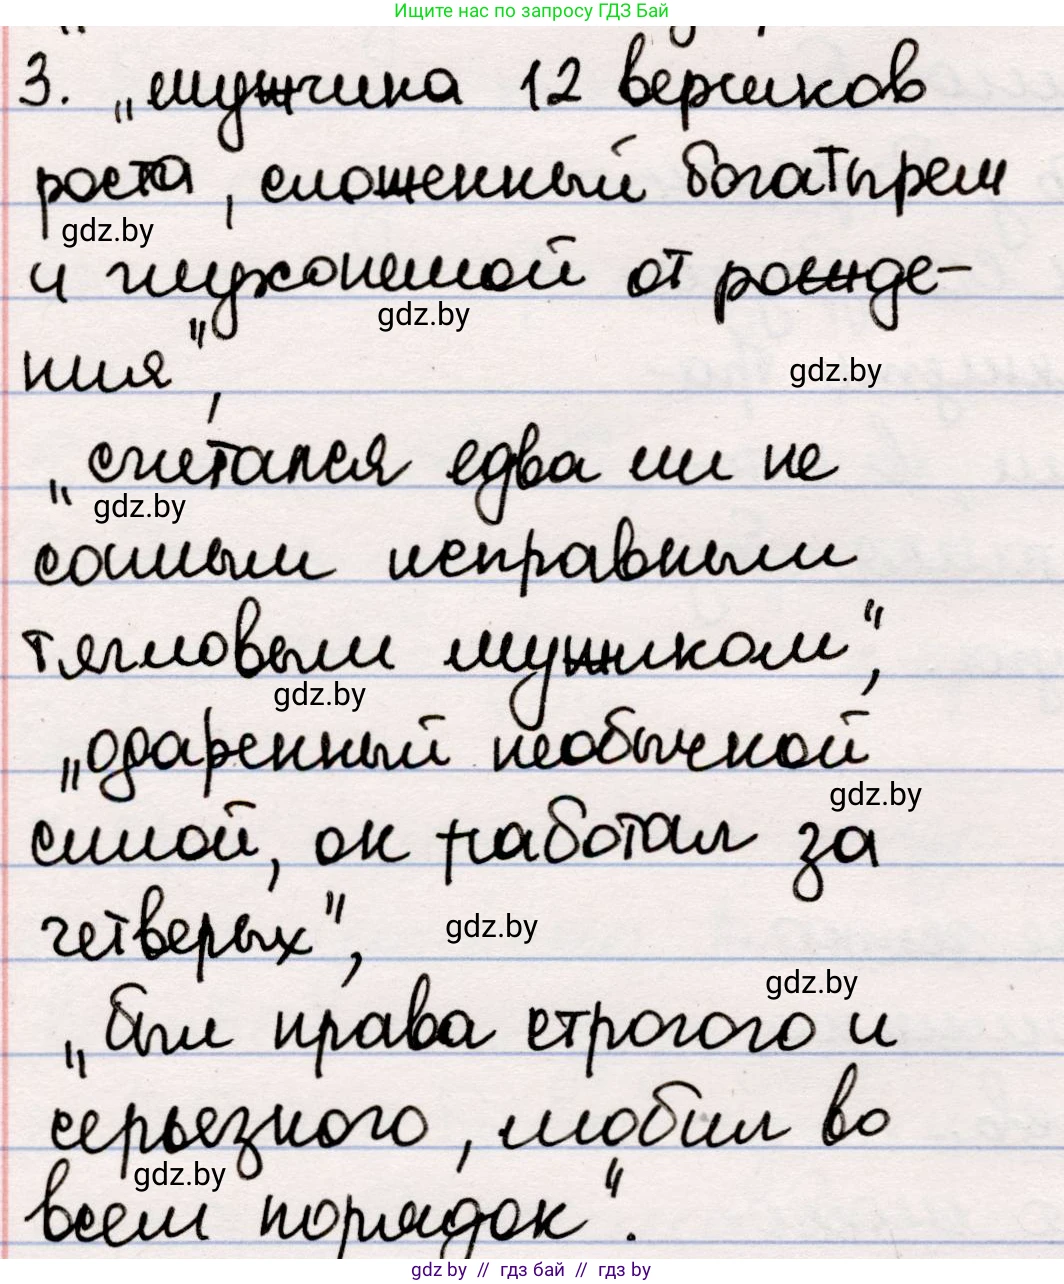 Ищите нас по запросу ГДЗ Бай
3. „мужчина 12 вершков
роста, сложенный богатырем
gdz.by
и глухонемой от рожде-
gdz.by
ния",
gdz.by
„считался едва ли не
gdz.by
самым исправным
тягловым мужиком",
gdz.by
„одаренный необычной
gdz.by
силой, он работал за
четверых",
gdz.by
gdz.by
„был нрава строгого и
серьезного, любил во
gdz.by
всем порядок".
gdz.by // гдз бай // gdz by